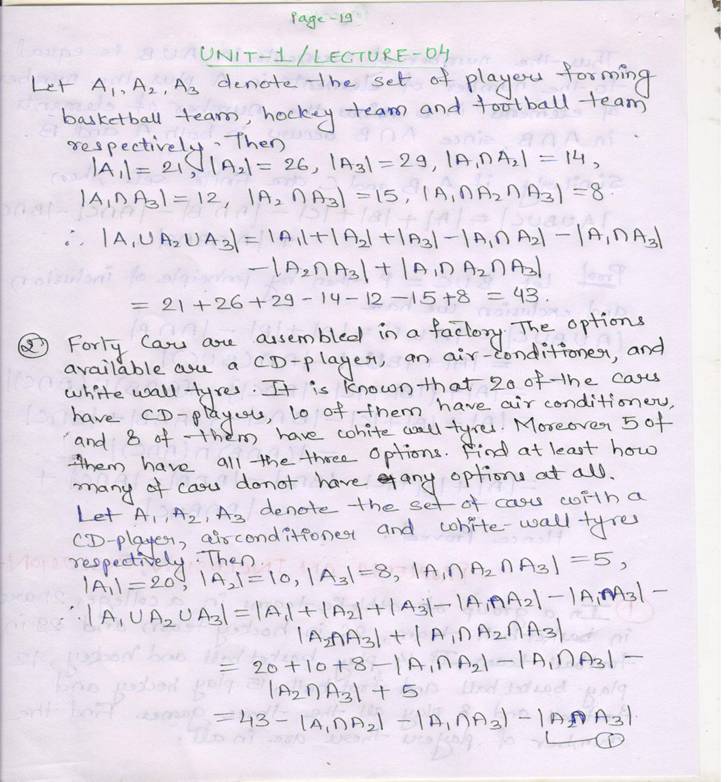 Page-19
UNIT-1/LECTURE-04
Let A₁, A₂, A₃ denote the set of players forming
basketball team, hockey team and football team
respectively. Then
|A₁| = 21, |A₂| = 26, |A₃| = 29, |A₁∩A₂| = 14,
|A₁∩A₃| = 12, |A₂∩A₃| = 15, |A₁∩A₂∩A₃| = 8.
∴ |A₁∪A₂∪A₃| = |A₁|+|A₂|+|A₃|-|A₁∩A₂|-|A₁∩A₃|
-|A₂∩A₃|+|A₁∩A₂∩A₃|
= 21+26+29-14-12-15+8 = 43.
② Forty cars are assembled in a factory. The options
available are a CD-player, an air-conditioner, and
white wall tyres. It is known that 20 of the cars
have CD-players, 10 of them, have air conditioners,
and 8 of them have white wall tyres. Moreover 5 of
them have all the three options. Find at least how
many of cars donot have any options at all.
Let A₁, A₂, A₃ denote the set of cars with a
CD-player, airconditioner and white-wall tyres
respectively. Then
|A₁| = 20, |A₂| = 10, |A₃| = 8, |A₁∩A₂∩A₃| = 5,
∴ |A₁∪A₂∪A₃| = |A₁|+|A₂|+|A₃|-|A₁∩A₂|-|A₁∩A₃|-
|A₂∩A₃|+|A₁∩A₂∩A₃|
= 20+10+8-|A₁∩A₂|-|A₁∩A₃|-
|A₂∩A₃|+5
= 43-|A₁∩A₂|-|A₁∩A₃|-|A₂∩A₃|
①